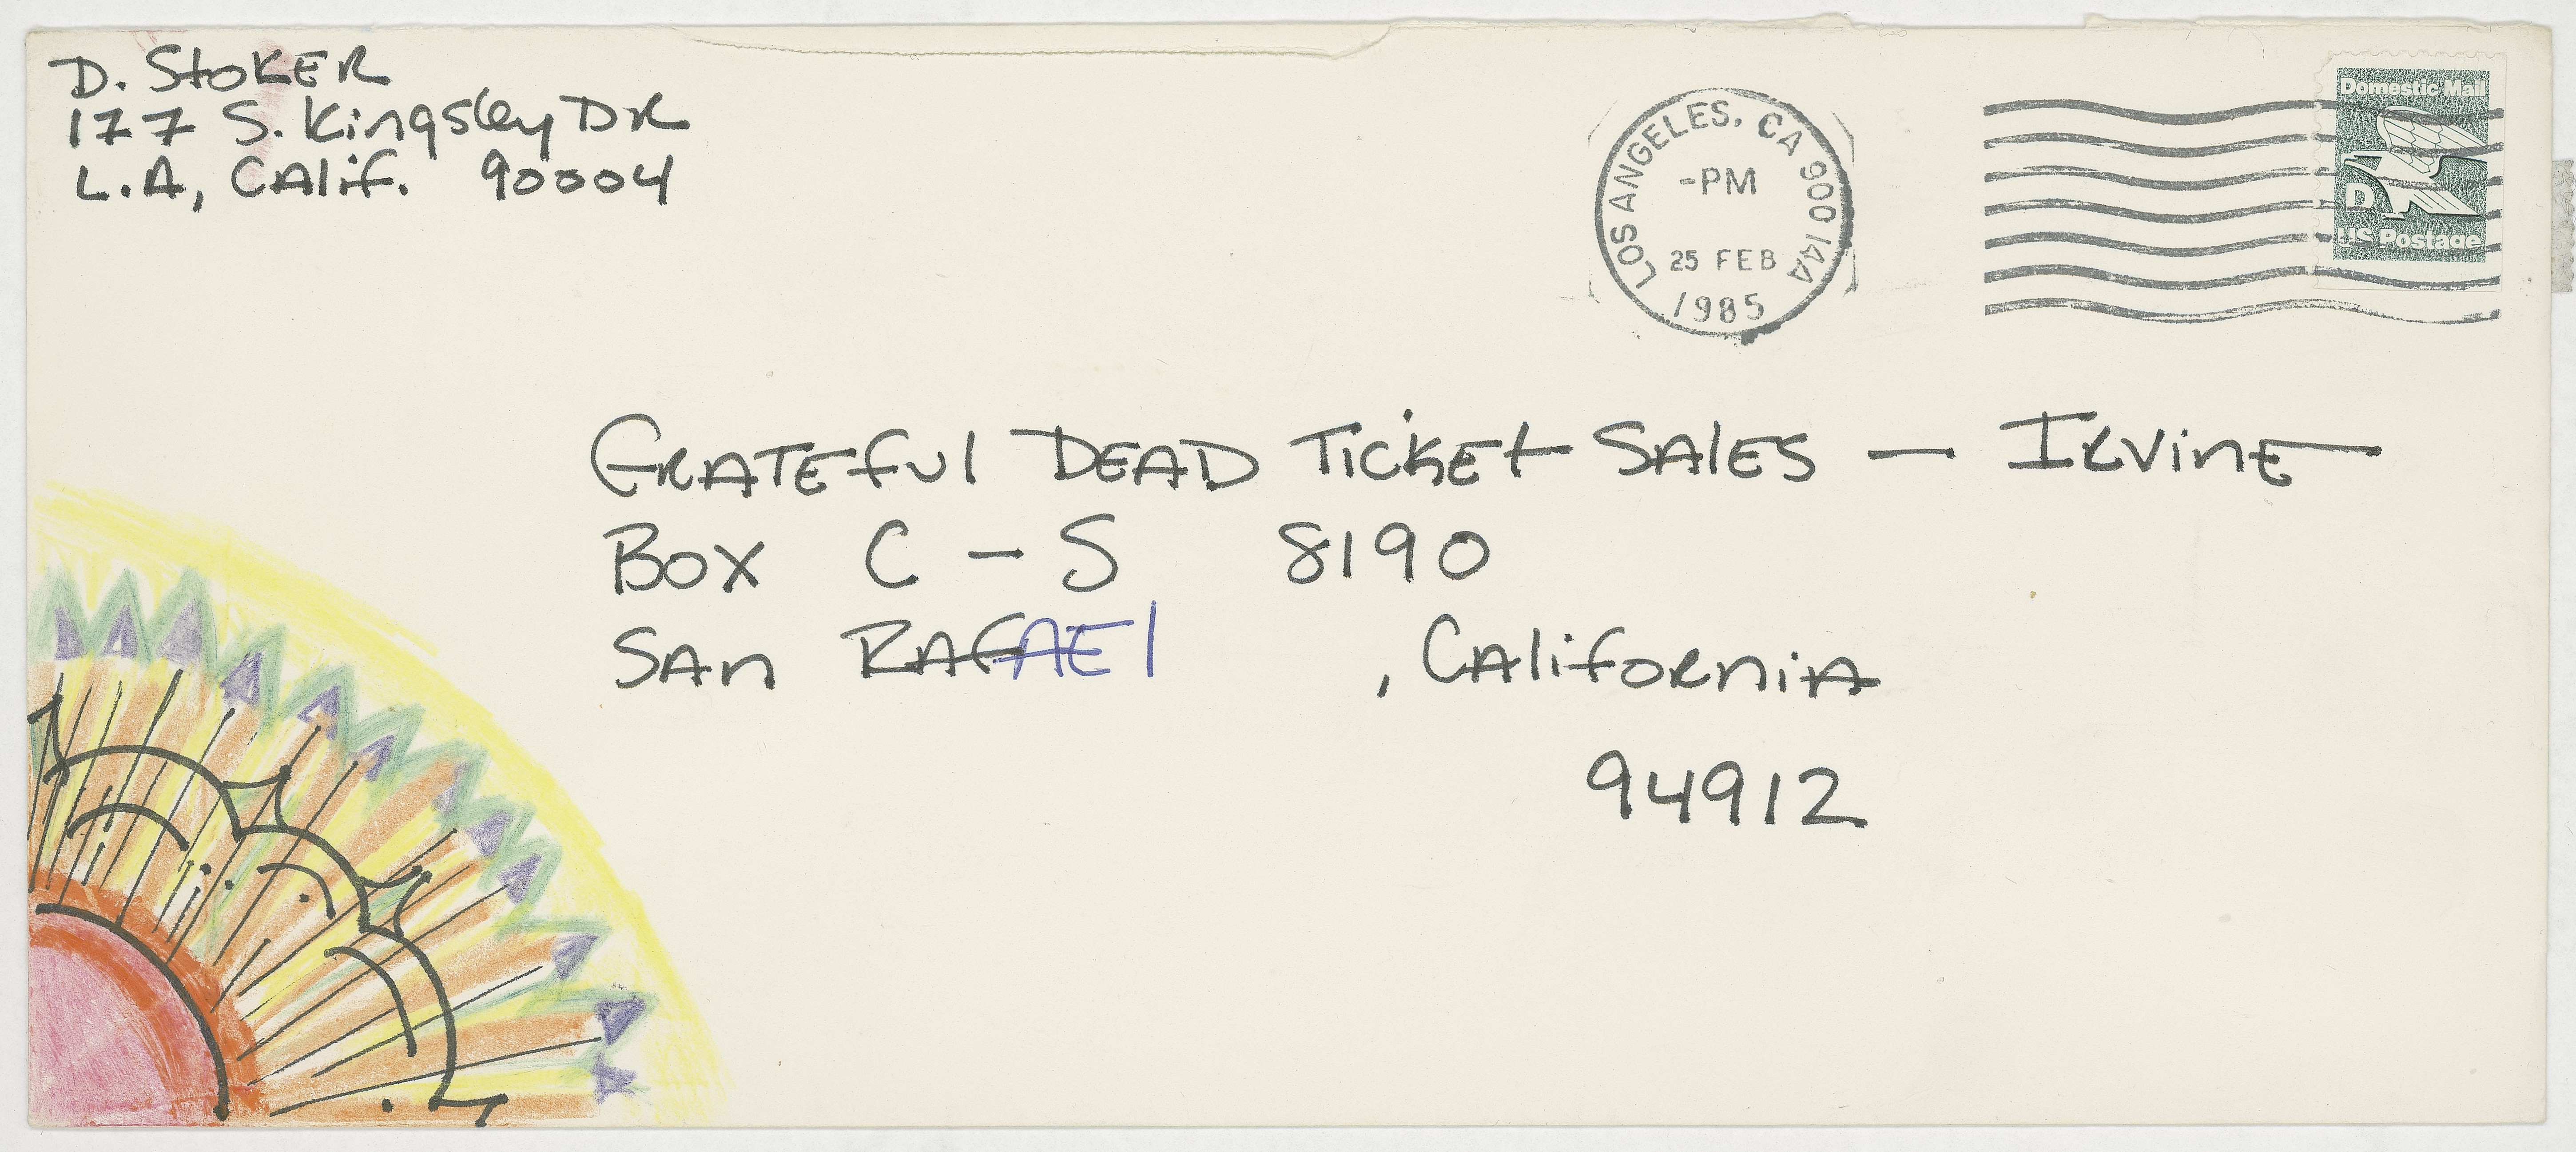 D. Stoker
177 S. Kingsley Dr
L.A, Calif. 90004
LOS ANGELES, CA 900 14A
-PM
25 FEB
1985
Domestic Mail
D
US Postage
Grateful Dead Ticket Sales — Irvine
Box C-S 8190
San Rafael , California
94912